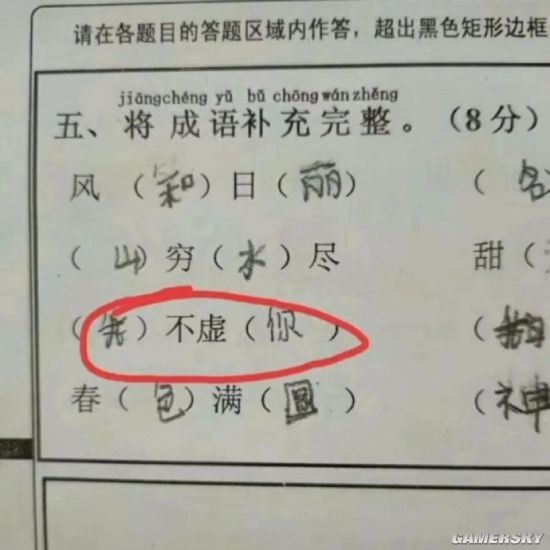 请在各题目的答题区域内作答，超出黑色矩形边框
jiāngchéng yǔ bǔ chōng wán zhěng
五、将成语补充完整。（8分）
风（和）日（丽） （
（山）穷（水）尽 甜（
（我）不虚（你） （
春（色）满（园） （神
GAMERSKY